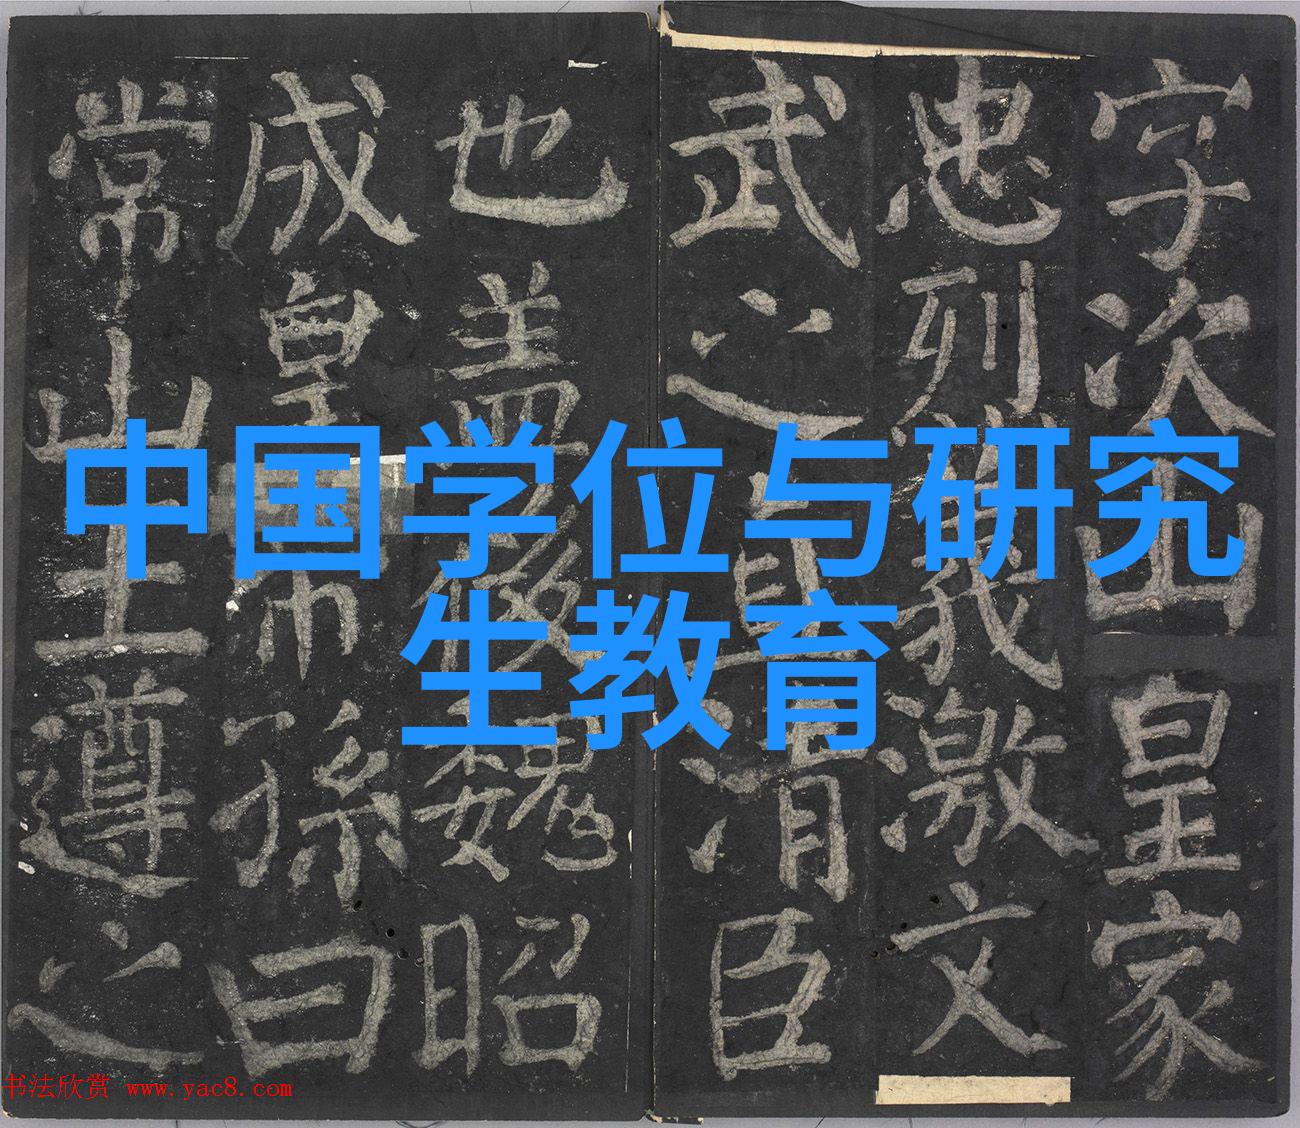 中国学位与研究
生教育
字次山皇家
忠列義激文
武之直清臣
也盖後魏昭
成皇帝孫曰
常山王遵之
书法欣赏 www.yac8.com